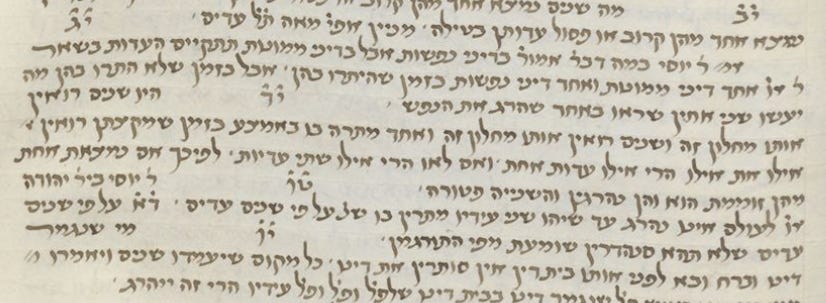 יב׳ מה שנים נמצא אחד מהן קרוב או פסול
נמצא אחד מהן קרוב או פסול עדותן בטילה׳ מניין אפי׳ מאה ת״ל עדים׳ יג׳
אמ׳ ר׳ יוסי במה דבר׳ אמור׳ בדיני נפשות אבל בדיני ממונות תתקיים העדות בשאר
ר׳ או׳ אחד דיני ממונות ואחד דיני נפשות בזמן שהיתרו בהן׳ אבל בזמן שלא התרו בהן מה
יעשו שני אחין שראו באחד שהרג את הנפש׳ יד׳ היו שנים רואין
אותו מחלון זה ושנים רואין אותו מחלון זה ואחד מתרה בו באמצע בזמן שמקצתן רואין
אילו את אילו הרי אילו עדות אחת׳ ואם לאו הרי אילו שתי עדיות׳ לפיכך אם נמצאת אחת
מהן זוממת הוא והן נהרגין והשנייה פטורה׳ טו׳ ר׳ יוסי ביר׳ יהודה
או׳ לעולם אינו נהרג עד שיהו שני עידיו מתרין בו שנ׳ על פי שנים עדים׳ ד״א על פי שנים
עדים שלא תהא סנהדרין שומעת מפי התורגמן׳ יו׳ מי שנגמר
דינו וברח ובא לפני אותו בית דין אין סותרין את דינו׳ כל מקום שיעמדו שנים ויאמרו
שנגמר דינו בבית דינו שלפל׳ ופל׳ ופל׳ עידיו הרי זה ייהרג׳